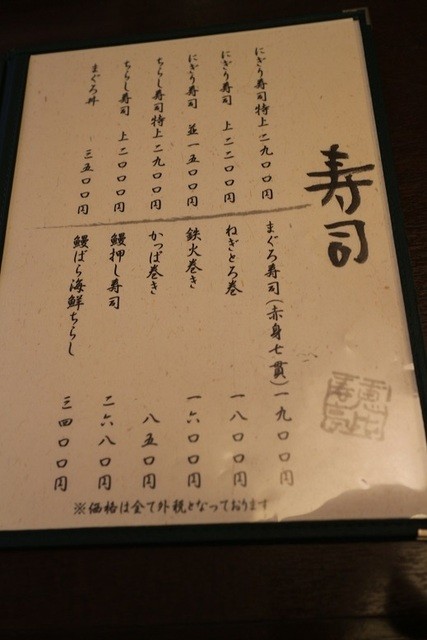 寿司
にぎり寿司特上 二九〇〇円
にぎり寿司 上 二二〇〇円
にぎり寿司 並 一五〇〇円
ちらし寿司特上 二九〇〇円
ちらし寿司 上 二〇〇〇円
まぐろ丼 二五〇〇円
まぐろ寿司(赤身七貫) 一九〇〇円
ねぎとろ巻 一八〇〇円
鉄火巻き 一六〇〇円
かっぱ巻き 八五〇円
鰻押し寿司 二六八〇円
鰻ばら海鮮ちらし 三四〇〇円
※価格は全て外税となっております